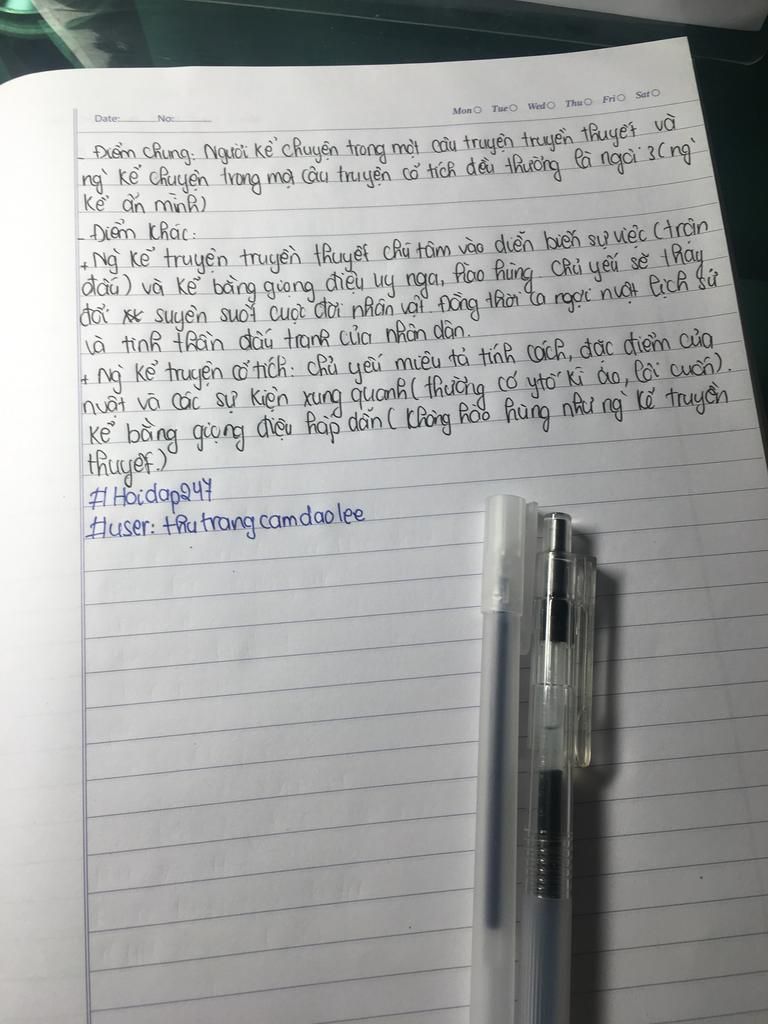 Date: No:
Mon Tue Wed Thu Fri Sat
- Điểm chung: Người kể chuyện trong một câu truyện truyền thuyết và
ng` kể chuyện trong mọt câu truyện cổ tích đều thường là ngôi 3 (ng`
kể ẩn mình)
- Điểm khác:
+ Ng` kể truyện truyền thuyết chú tâm vào diễn biến sự việc (trận
đấu) và kể bằng giọng điệu uy nga, hào hùng chủ yếu sẽ thay
đổi suyên suốt cuộc đời nhân vật. Đồng thời ca ngợi nvật lịch sử
và tinh thần đấu tranh của nhân dân.
+ Ng` kể truyện cổ tích: chủ yếu miêu tả tính cách, đặc điểm của
nvật và các sự kiện xung quanh (thường có ytố kì ảo, lôi cuốn).
Kể bằng giọng điệu hấp dẫn (không hào hùng như ng` kể truyền
thuyết.)
#Hoidap247
#user: thutrangcamdaolee